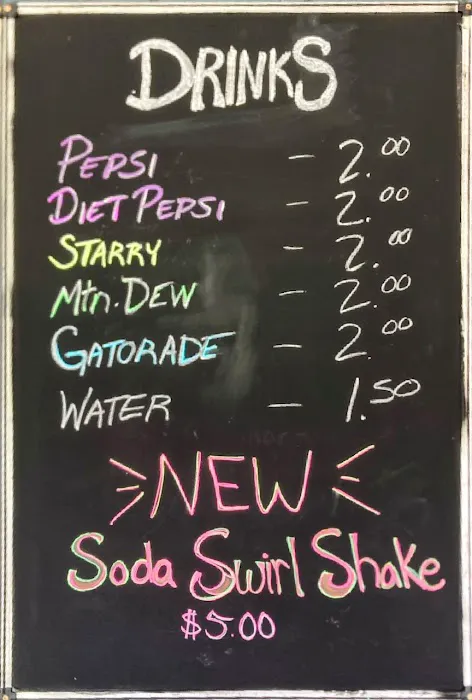 DRINKS
PEPSI - 2.00
DIET PEPSI - 2.00
STARRY - 2.00
Mtn. DEW - 2.00
GATORADE - 2.00
WATER - 1.50
NEW
Soda Swirl Shake
$5.00